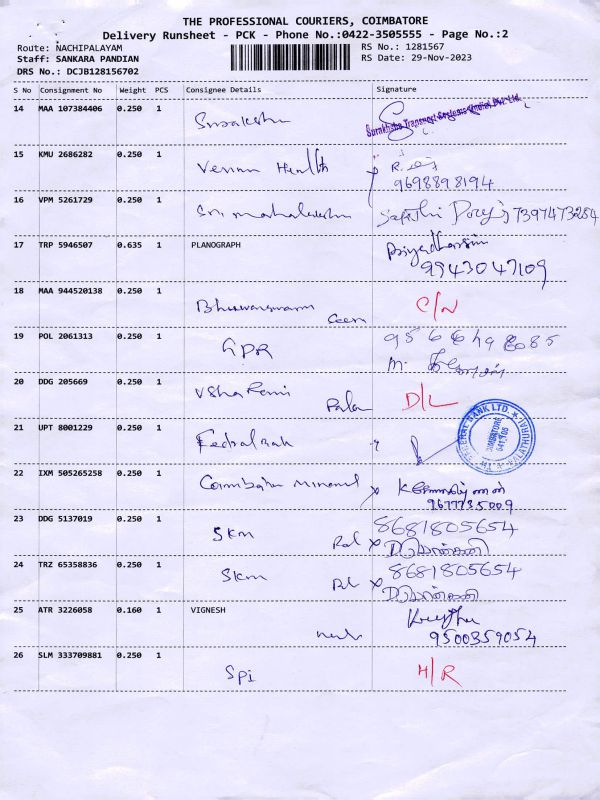 THE PROFESSIONAL COURIERS, COIMBATORE
Delivery Runsheet - PCK - Phone No.:0422-3505555 - Page No.:2
Route: NACHIPALAYAM RS No.: 1281567
Staff: SANKARA PANDIAN RS Date: 29-Nov-2023
DRS No.: DCJB128156702
S No Consignment No Weight PCS Consignee Details Signature
14 MAA 107384406 0.250 1
15 KMU 2686282 0.250 1 Health
9698898194
16 VPM 5261729 0.250 1 Sri mahalakshmi 7397473254
17 TRP 5946507 0.635 1 PLANOGRAPH Priyadharsini
9943047109
18 MAA 944520138 0.250 1 C/N
19 POL 2061313 0.250 1 GPR
M.
20 DDG 205669 0.250 1 D/L
21 UPT 8001229 0.250 1
22 IXM 505265258 0.250 1 Coimbatore
9677735009
23 DDG 5137019 0.250 1 Skm 8681805654
24 TRZ 65358836 0.250 1 Skm 8681805654
25 ATR 3226058 0.160 1 VIGNESH
9500359054
26 SLM 333709881 0.250 1 Spi H/R